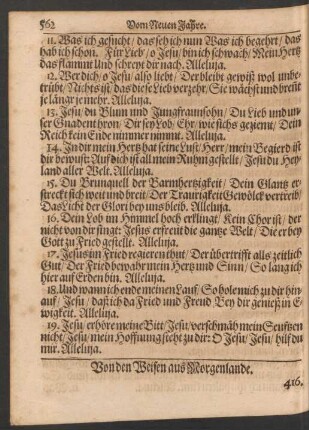 562 Vom Neuen Jahre.
11. Was ich gesucht / das seh ich nun Was ich begehrt / das
hab ich schon. Für Lieb / o Jesu / bin ich schwach / Mein Hertz
das flammt und schreyt dir nach. Alleluja.
12. Wer dich / o Jesu / also liebt / Der bleibt gewiß wol unbe-
trübt / Nichts ist das diese Lieb verzehr / Sie wächst und brent
je länger je mehr. Alleluja.
13. Jesu du Blum und Jungfraunsohn / Du Lieb und un-
ser Gnadenthron. Dir sey Lob / Ehr / wie sichs geziemt / Dein
Reich kein Ende nimmer nimmt. Alleluja.
14. In dir mein Hertz hat seine Lust / Herr / mein Begierd ist
dir bewust: Auf dich ist all mein Ruhm gestellt / Jesu du Hey-
land aller Welt. Alleluja.
15. Du Brunquell der Barmhertzigkeit / Dein Glantz er-
streckt sich weit und breit / Der Traurigkeit Gewölck vertreib /
Das Licht der Glori bey uns bleib. Alleluja.
16. Dein Lob im Himmel hoch erklingt / Kein Chor ist / der
nicht von dir singt: Jesus erfreut die gantze Welt / Die er bey
Gott zu Fried gestellt. Alleluja.
17. Jesus im Fried regieren thut / Der übertrifft alls zeitlich
Gut / Der Fried bewahr mein Hertz und Sinn / So lang ich
hier auf Erden bin. Alleluja.
18. Und wann ich ende meinen Lauf / So hole mich zu dir hin-
auf / Jesu / daß ich da Fried und Freud Bey dir genieß in E-
wigkeit. Alleluja.
19. Jesu / erhöre meine Bitt / Jesu / verschmäh mein Seuftzen
nicht / Jesu / mein Hoffnung steht zu dir: O Jesu / Jesu / hilf du
mir. Alleluja.
Von den Weisen aus Morgenlande.
416.